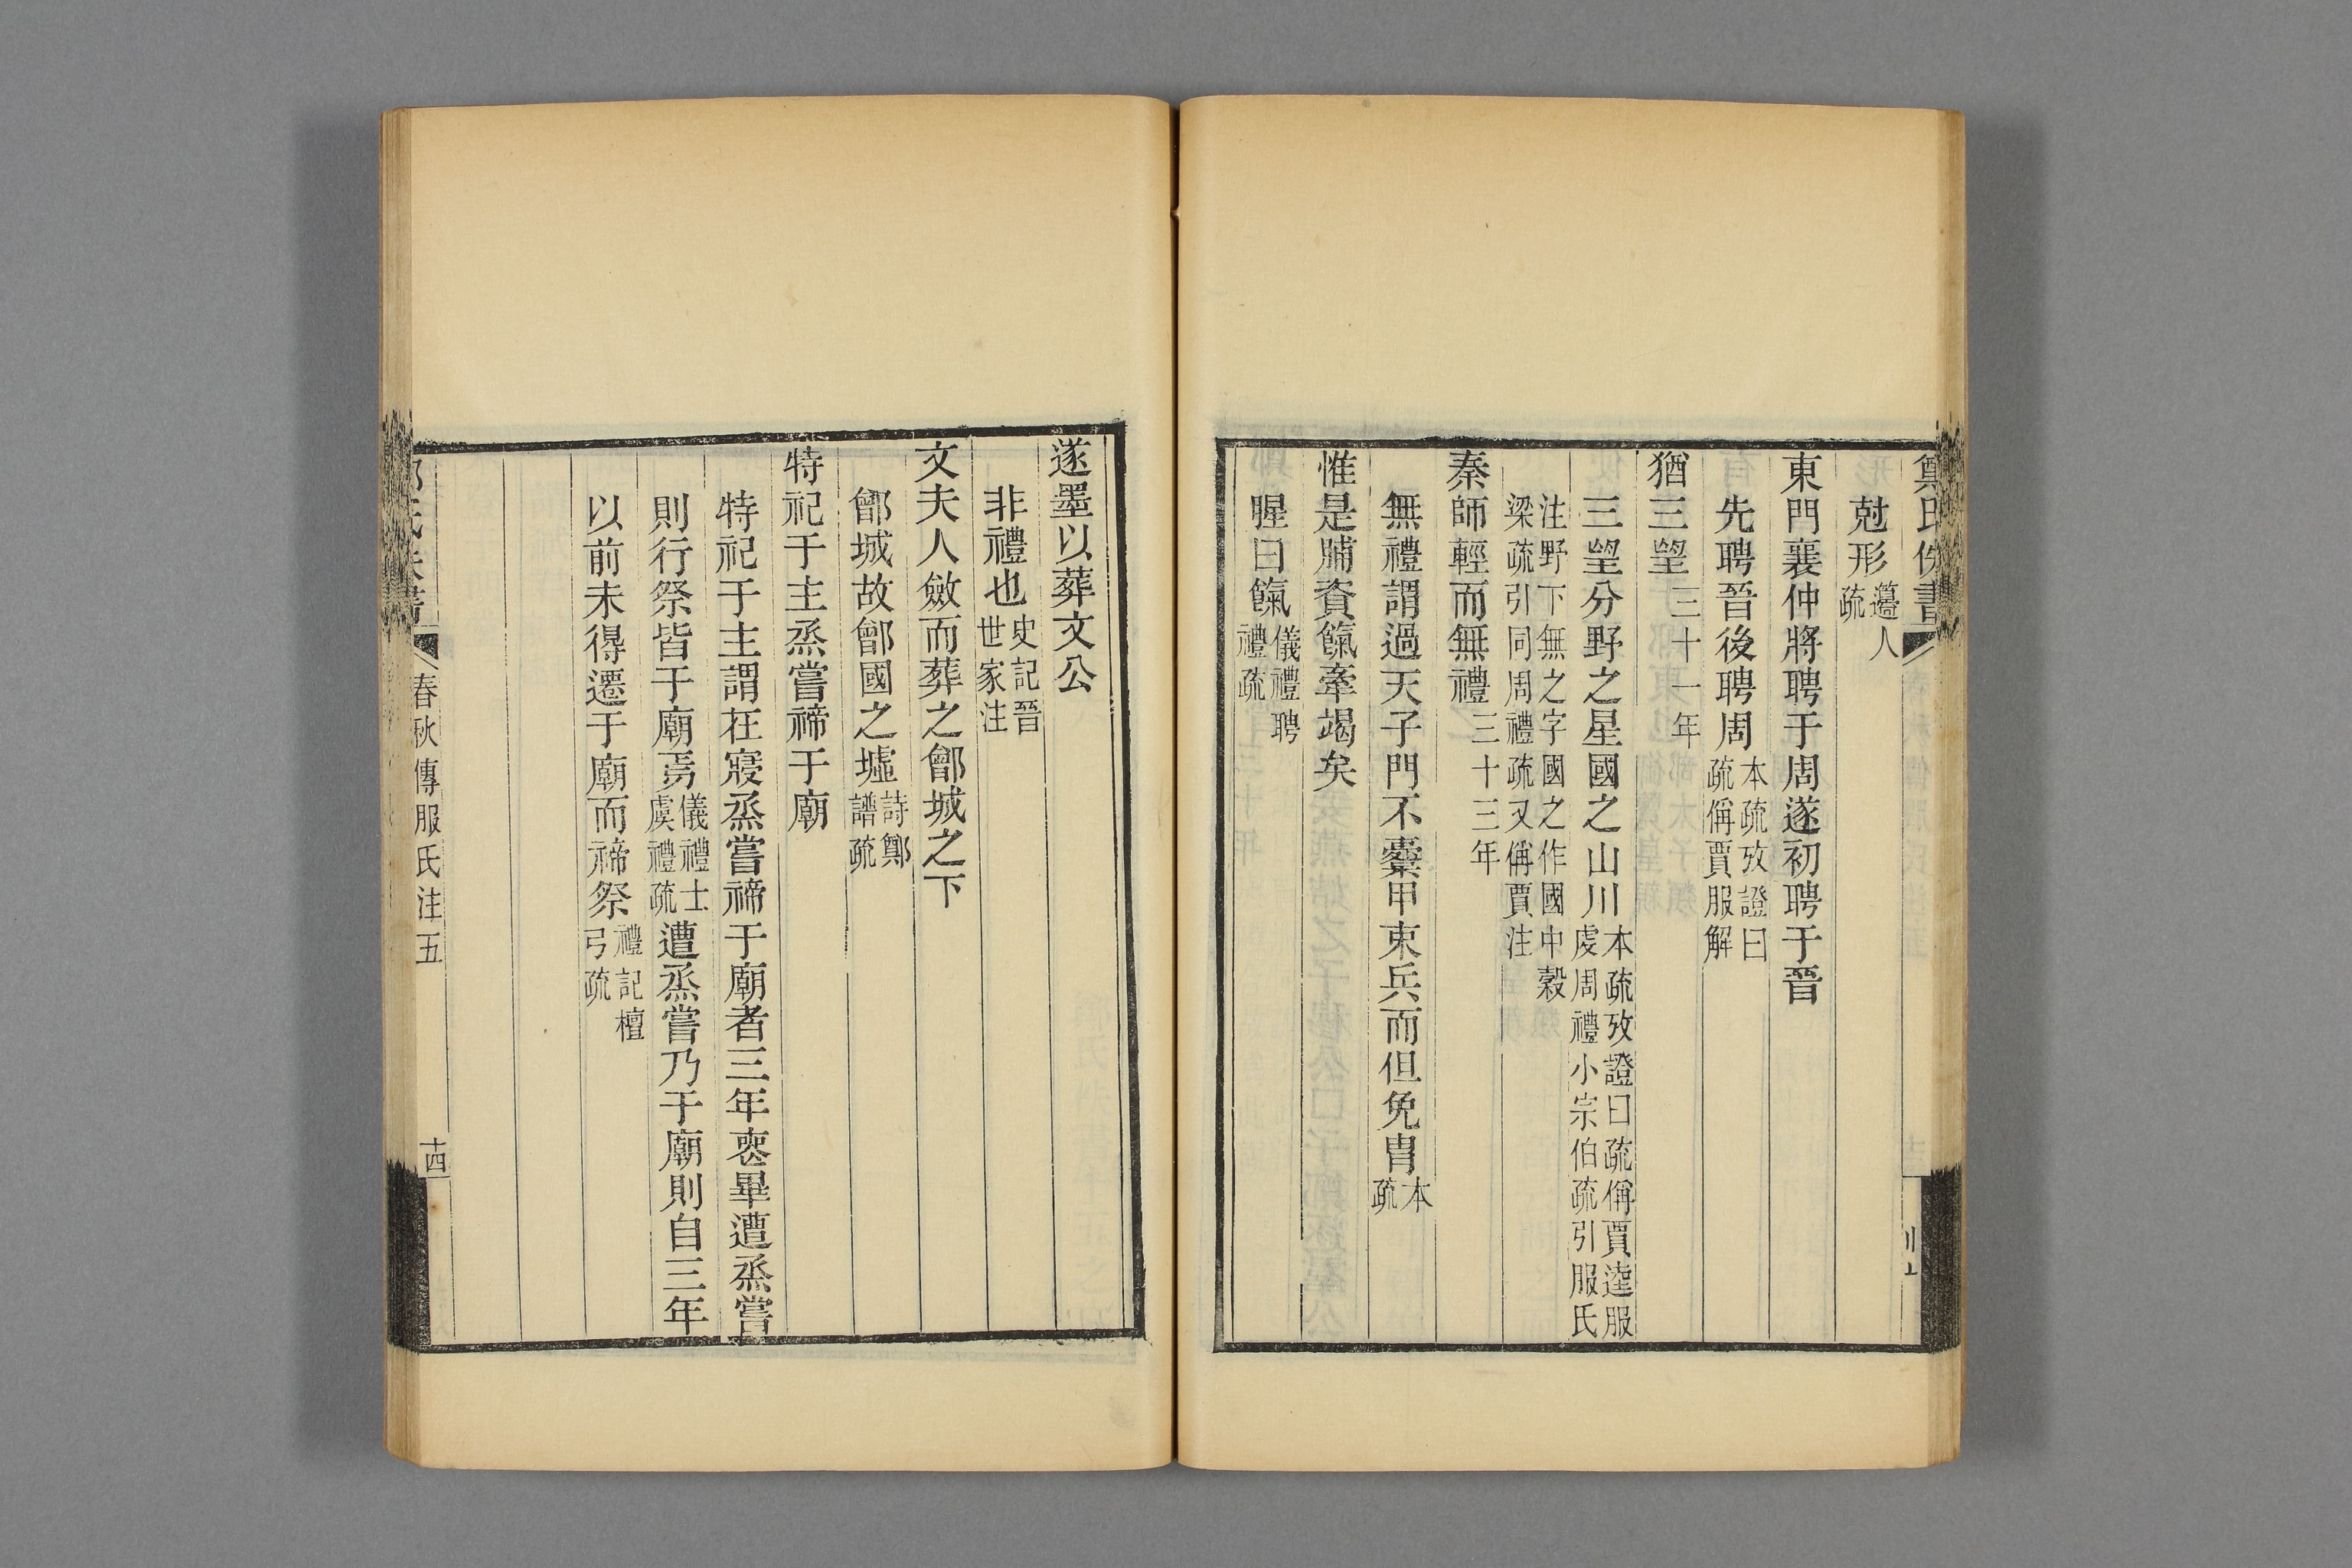 鄭氏佚書
尅形籩人
疏
東門襄仲將聘于周遂初聘于晉
先聘晉後聘周本疏攷證曰
疏偁賈服解
猶三望三十一年
三望分野之星國之山川本疏攷證曰疏偁賈逵服
虔周禮小宗伯疏引服氏
注野下無之字國之作國中穀
梁疏引同周禮疏又偁賈注
秦師輕而無禮三十三年
無禮謂過天子門不櫜甲束兵而但免胄本
疏
惟是脯資餼牽竭矣
腥曰餼儀禮聘
禮疏
遂墨以葬文公
非禮也史記晉
世家注
文夫人斂而葬之鄶城之下
鄶城故鄶國之墟詩鄭
譜疏
特祀于主烝嘗禘于廟
特祀于主謂在寢烝嘗禘于廟者三年喪畢遭烝嘗
則行祭皆于廟焉儀禮士
虞禮疏遭烝嘗乃于廟則自三年
以前未得遷于廟而禘祭禮記檀
弓疏
春秋傳服氏注五
十四